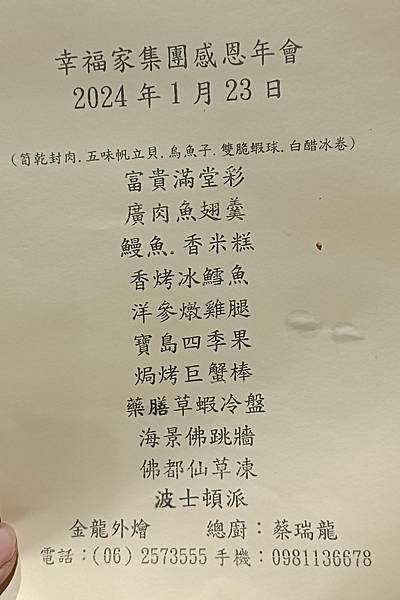 幸福家集團感恩年會
2024年1月23日
（筍乾封肉.五味帆立貝.烏魚子.雙脆蝦球.白醋冰卷）
富貴滿堂彩
廣肉魚翅羹
鰻魚.香米糕
香烤冰鱈魚
洋參燉雞腿
寶島四季果
焗烤巨蟹棒
藥膳草蝦冷盤
海景佛跳牆
佛都仙草凍
波士頓派
金龍外燴 總廚：蔡瑞龍
電話：(06) 2573555 手機：0981136678